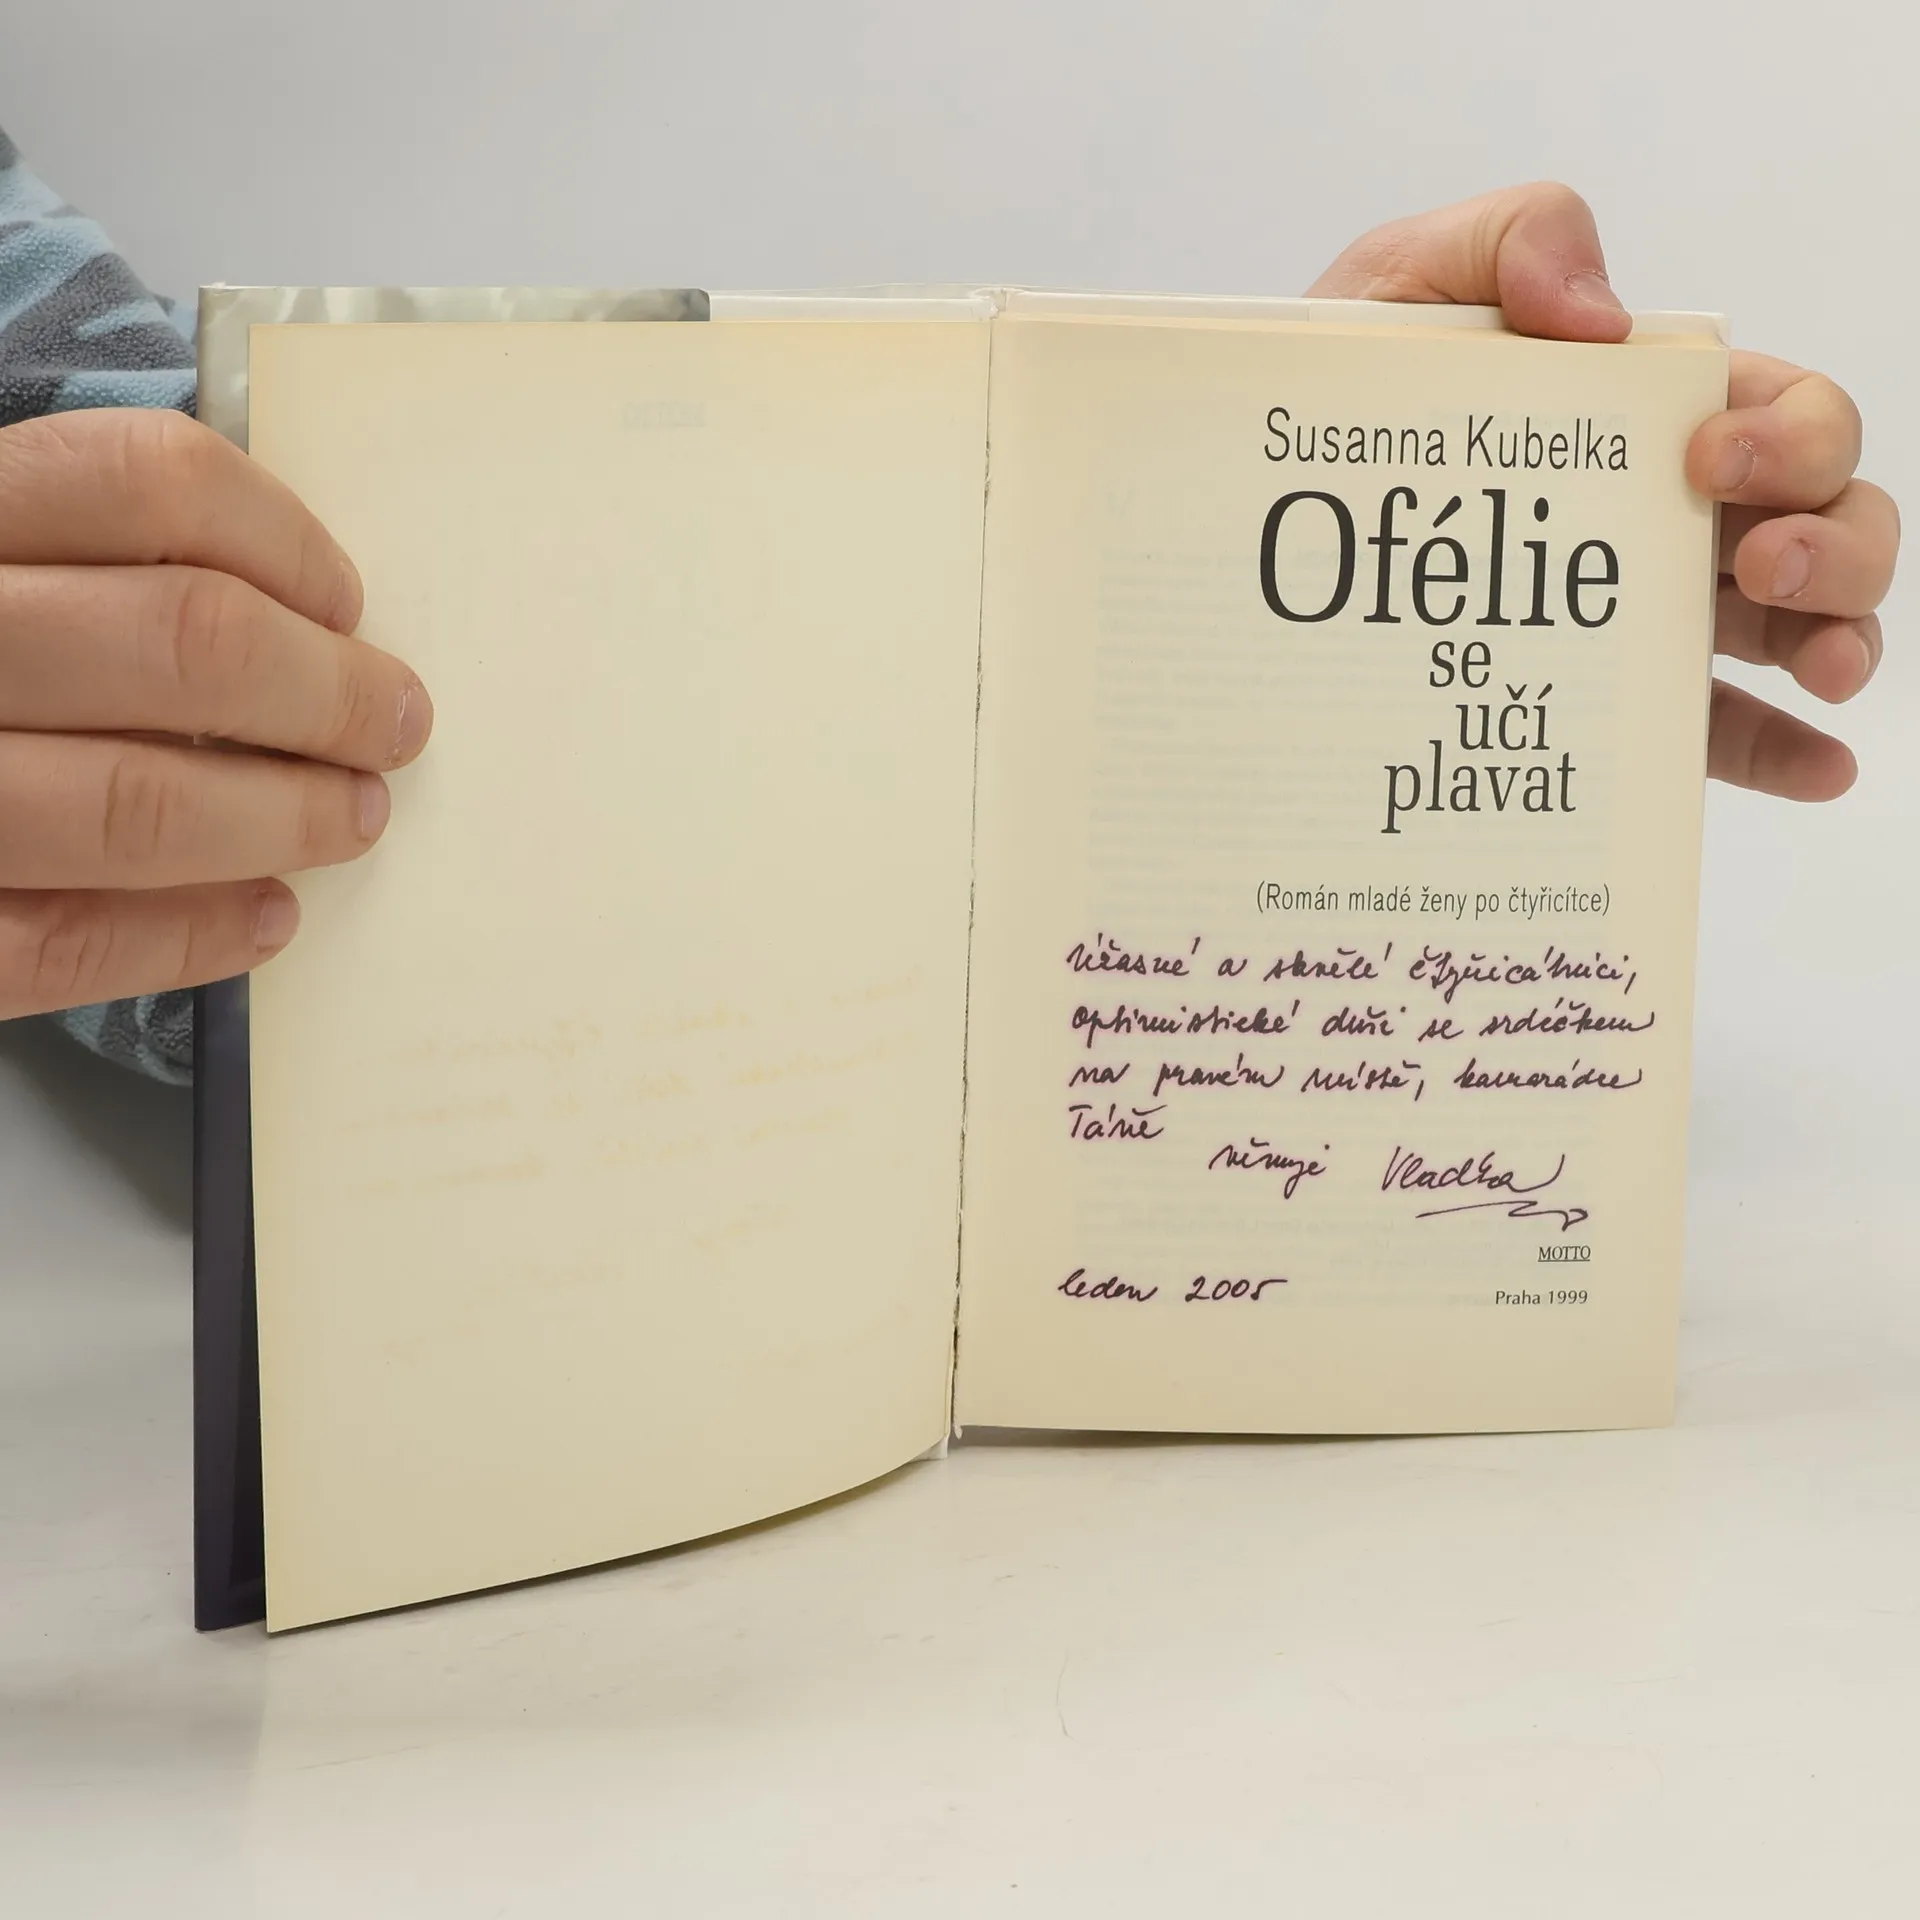 Susanna Kubelka
Ofélie
se
učí
plavat
(Román mladé ženy po čtyřicítce)
Úžasné a skvělé čtyřicátnici,
optimistické duši se srdéčkem
na pravém místě, kamarádce
Táně
věnuje Vladka
MOTTO
leden 2005
Praha 1999